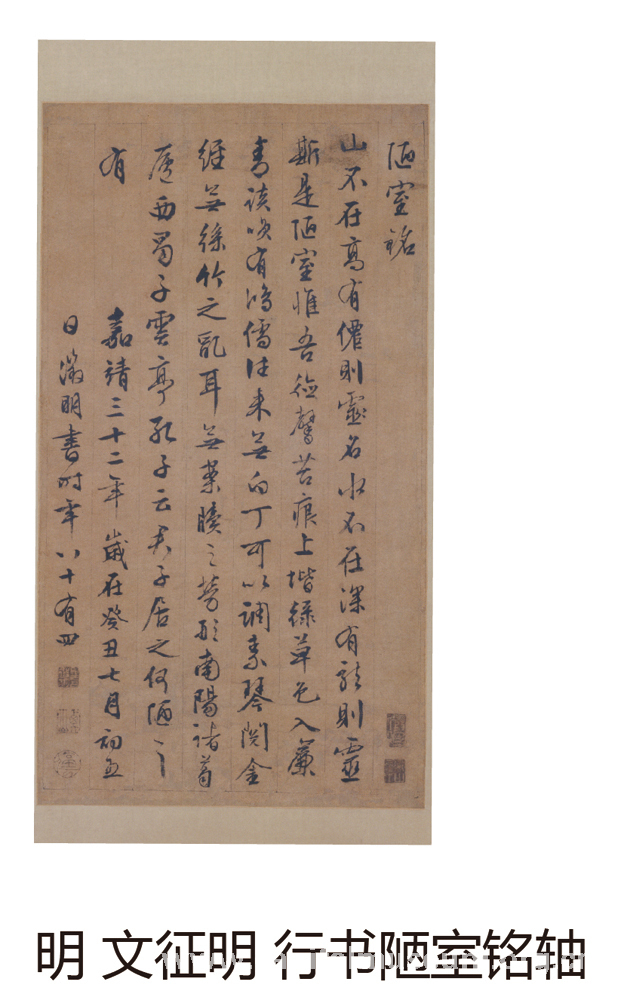 陋室銘
山不在高有僊則靈名水不在深有龍則靈
斯是陋室惟吾德馨苔痕上堦綠草色入簾
青談咲有鴻儒往來無白丁可以調素琴閱金
經無絲竹之亂耳無案牘之勞形南陽諸葛
廬西蜀子雲亭孔子云君子居之何陋之
有
嘉靖三十二年歲在癸丑七月初五
日徵明書時年八十有四
明 文征明 行书陋室铭轴